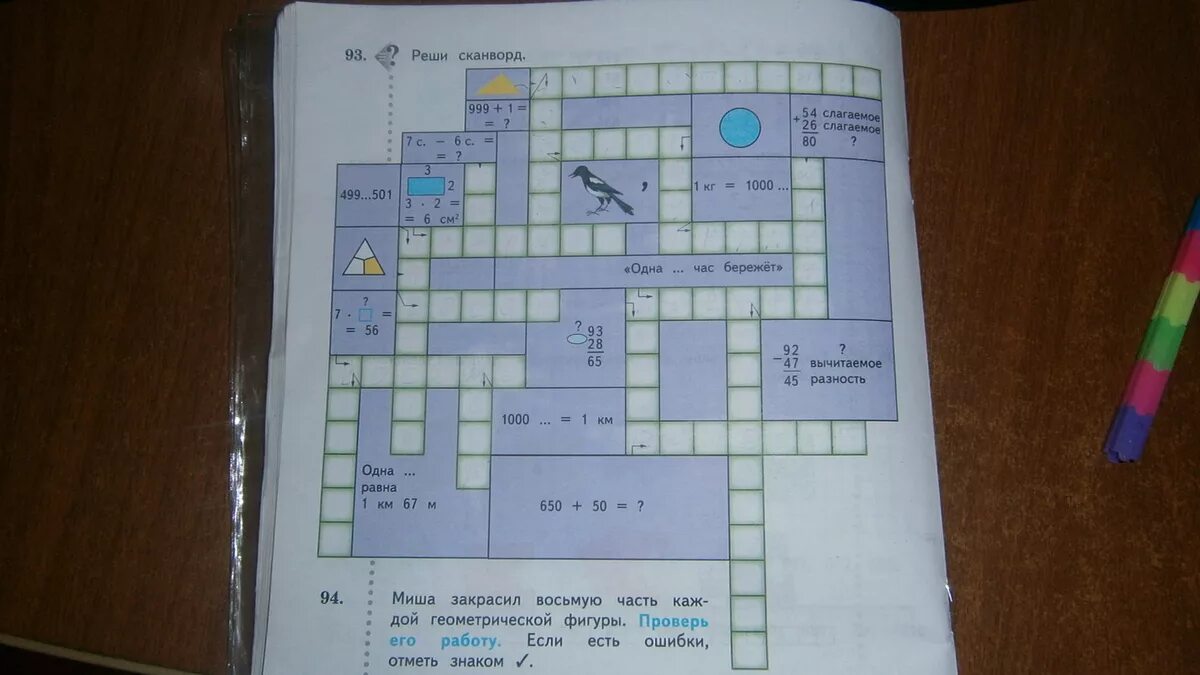 93. ? Реши сканворд.
999 + 1 =
= ?
+ 54 слагаемое
26 слагаемое
80 ?
7 с. − 6 с. =
= ?
499...501
3
2
3 · 2 =
= 6 см²
,
1 кг = 1000 ...
«Одна ... час бережёт»
?
7 · □ =
= 56
? 93
28
65
− 92 ?
47 вычитаемое
45 разность
1000 ... = 1 км
Одна ...
равна
1 км 67 м
650 + 50 = ?
94. Миша закрасил восьмую часть каж-
дой геометрической фигуры. Проверь
его работу. Если есть ошибки,
отметь знаком ✓.